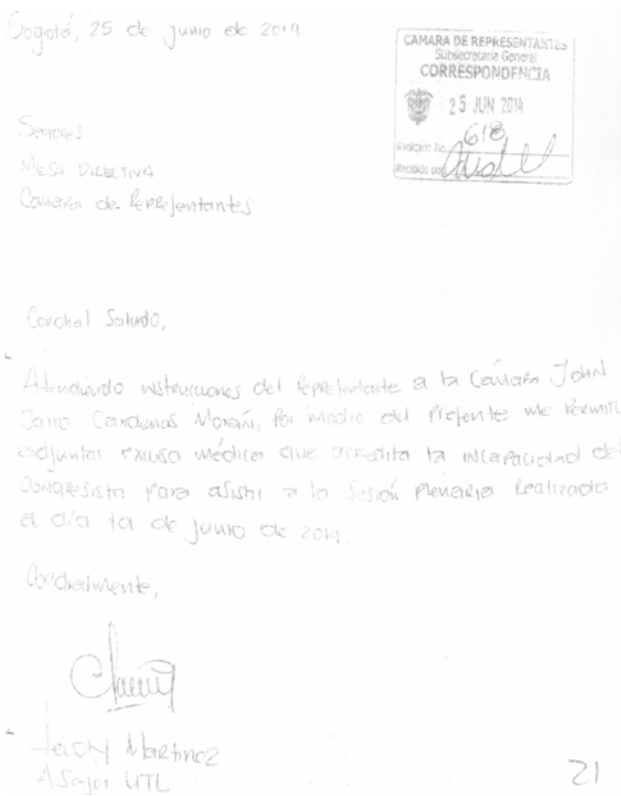 Bogotá, 25 de junio de 2019
CAMARA DE REPRESENTANTES
Subsecretaria General
CORRESPONDENCIA
25 JUN 2019
Radicado No. 618
Recibido por
Señores
MESA DIRECTIVA
Camara de Representantes
Cordial Saludo,
Atendiendo instrucciones del Representante a la Cámara John
Jairo Cardenas Morán, por medio del presente me permito
adjuntar excusa médica que acredita la incapacidad del
Congresista para asistir a la Sesión Plenaria Realizada
el día 19 de junio de 2019.
Cordialmente,
Martinez
Asesor UTL
21